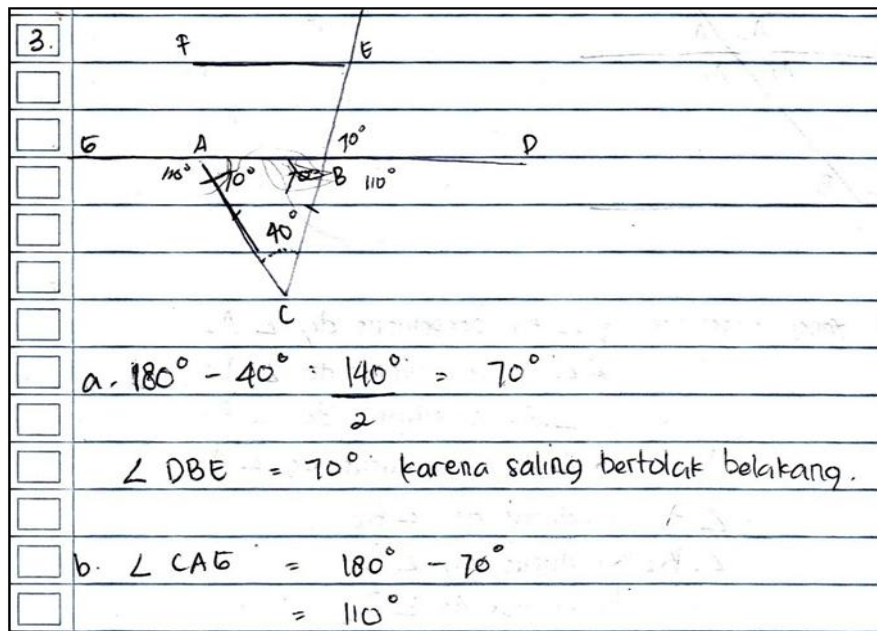 3.
F E
G A 70° D
110° 70° 70° B 110°
40°
C
a. 180° - 40° = 140° = 70°
2
∠ DBE = 70° karena saling bertolak belakang.
b. ∠ CAG = 180° - 70°
= 110°